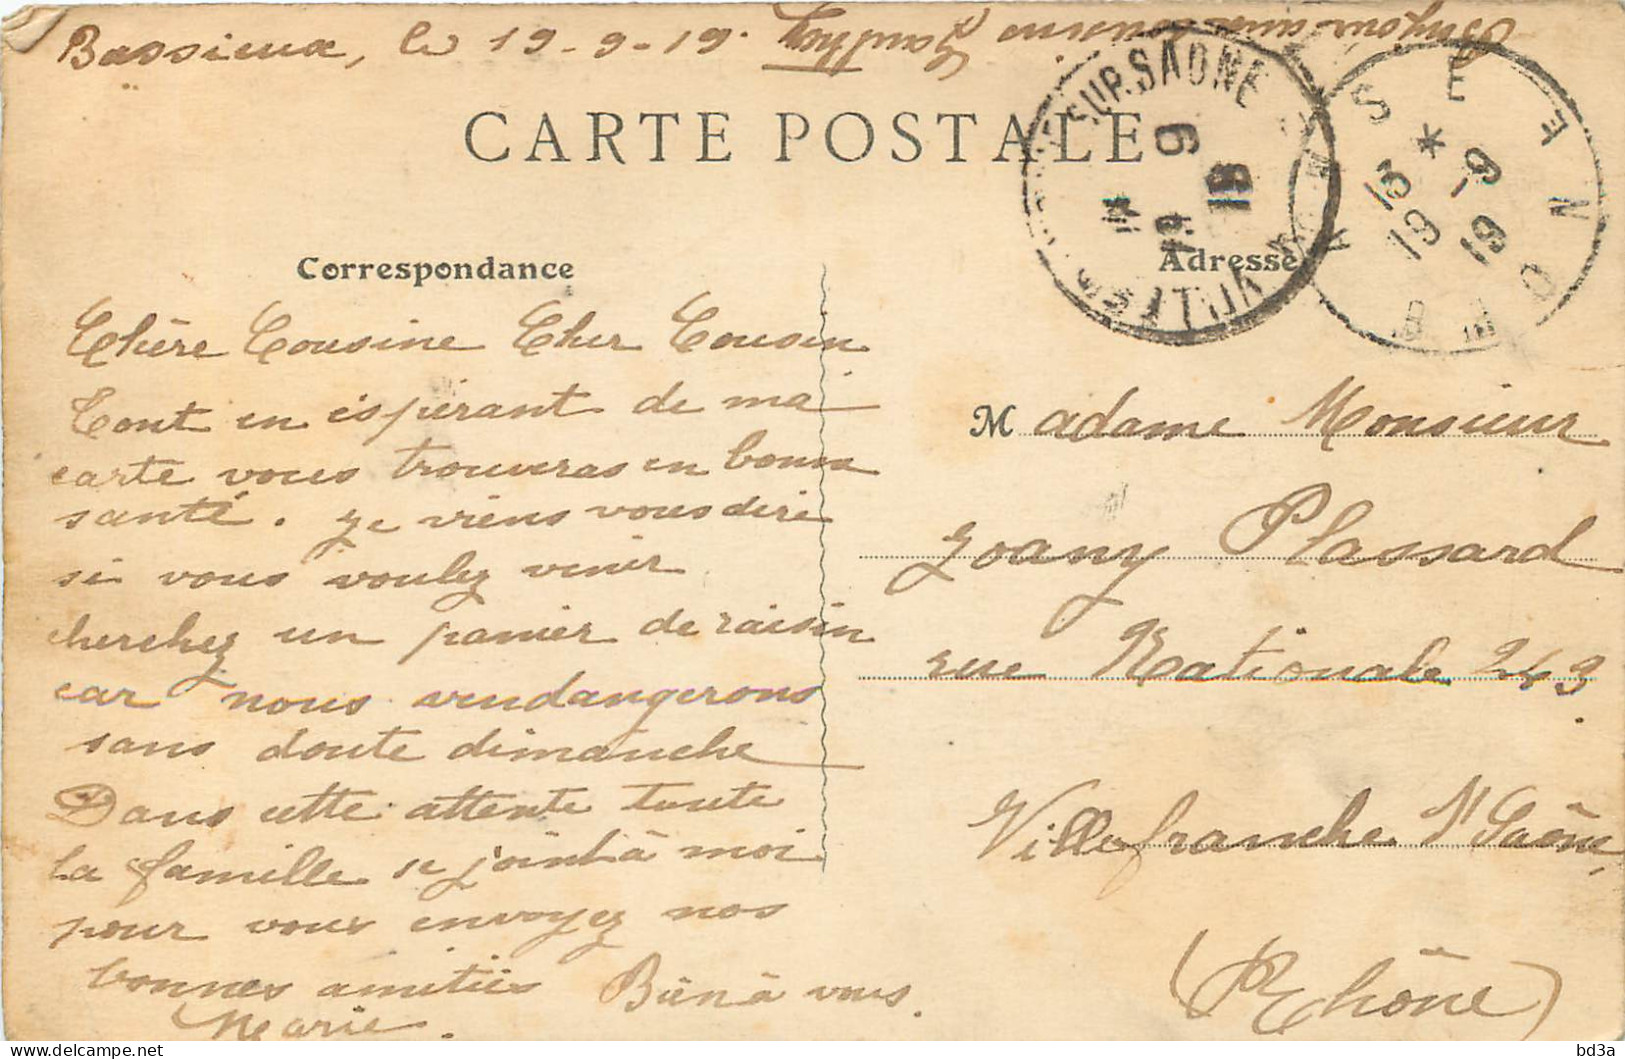 Bassieux, le 19-9-19.
CARTE POSTALE
SUR SAONE
VILLE
19
* 
13 -9
19 19
Correspondance
Adresse
Chère Cousine Cher Cousin
Tout en éspérant de ma
carte vous trouveras en bonne
santé. Je viens vous dire
si vous voulez venir
cherchez un panier de raisin
car nous vendangerons
sans doute dimanche
Dans cette attente toute
la famille se joint à moi
pour vous envoyez nos
bonnes amitiés Bien à vous.
Marie.
Madame Monsieur
Joany Plassard
rue Nationale 243
Villefranche s/ Saône
(Rhône)
bd3a